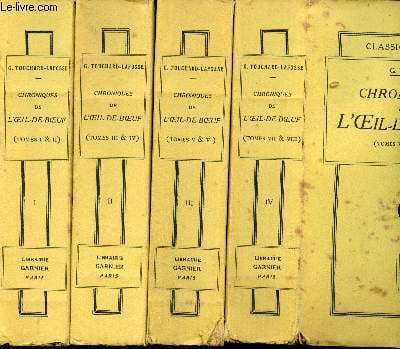 Le-livre.com
G. TOUCHARD-LAFOSSE
CHRONIQUES
DE
L'ŒIL-DE-BŒUF
(TOMES I & II)
I
LIBRAIRIE
GARNIER
PARIS
G. TOUCHARD-LAFOSSE
CHRONIQUES
DE
L'ŒIL-DE-BŒUF
(TOMES III & IV)
II
LIBRAIRIE
GARNIER
PARIS
G. TOUCHARD-LAFOSSE
CHRONIQUES
DE
L'ŒIL-DE-BŒUF
(TOMES V & VI)
III
LIBRAIRIE
GARNIER
PARIS
G. TOUCHARD-LAFOSSE
CHRONIQUES
DE
L'ŒIL-DE-BŒUF
(TOMES VII & VIII)
IV
LIBRAIRIE
GARNIER
PARIS
CLASSIQ
G.
CHRO
L'ŒIL-D
(TOMES V